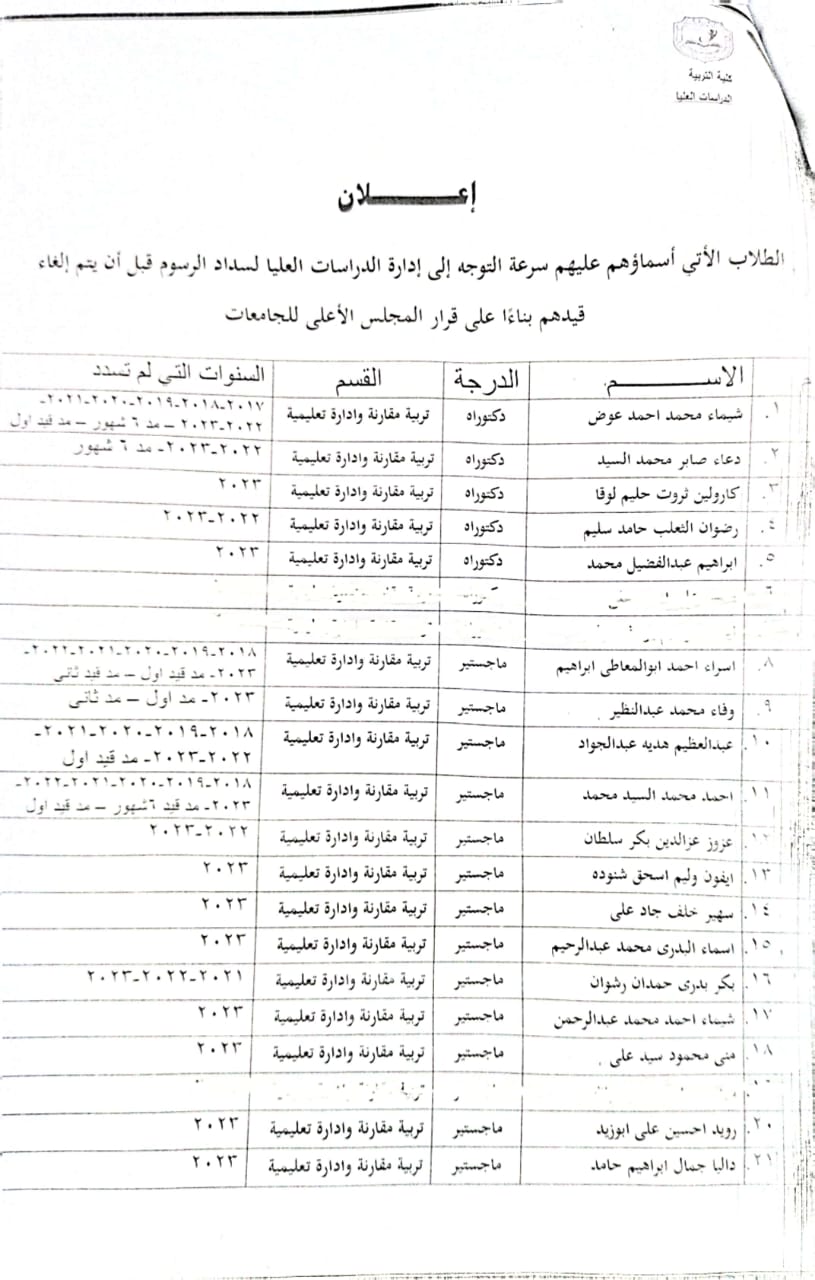 كلية التربية
الدراسات العليا
إعـــــــــلان
الطلاب الأتي أسماؤهم عليهم سرعة التوجه إلى إدارة الدراسات العليا لسداد الرسوم قبل أن يتم إلغاء
قيدهم بناءًا على قرار المجلس الأعلى للجامعات
الاســـــــم الدرجة القسم السنوات التي لم تسدد
١. شيماء محمد احمد عوض دكتوراه تربية مقارنة وادارة تعليمية ٢٠١٧-٢٠١٨-٢٠١٩-٢٠٢٠-٢٠٢١-
٢٠٢٢-٢٠٢٣ – مد ٦ شهور – مد قيد اول
٢. دعاء صابر محمد السيد دكتوراه تربية مقارنة وادارة تعليمية ٢٠٢٢-٢٠٢٣- مد ٦ شهور
٣. كارولين ثروت حليم لوقا دكتوراه تربية مقارنة وادارة تعليمية ٢٠٢٣
٤. رضوان الثعلب حامد سليم دكتوراه تربية مقارنة وادارة تعليمية ٢٠٢٢-٢٠٢٣
٥. ابراهيم عبدالفضيل محمد دكتوراه تربية مقارنة وادارة تعليمية ٢٠٢٣
٨. اسراء احمد ابوالمعاطى ابراهيم ماجستير تربية مقارنة وادارة تعليمية ٢٠١٨-٢٠١٩-٢٠٢٠-٢٠٢١-٢٠٢٢-
٢٠٢٣- مد قيد اول – مد قيد ثانى
٩. وفاء محمد عبدالنظير ماجستير تربية مقارنة وادارة تعليمية ٢٠٢٣- مد اول – مد ثانى
١٠. عبدالعظيم هديه عبدالجواد ماجستير تربية مقارنة وادارة تعليمية ٢٠١٨-٢٠١٩-٢٠٢٠-٢٠٢١-
٢٠٢٢-٢٠٢٣- مد قيد اول
١١. احمد محمد السيد محمد ماجستير تربية مقارنة وادارة تعليمية ٢٠١٨-٢٠١٩-٢٠٢٠-٢٠٢١-٢٠٢٢-
٢٠٢٣- مد قيد ٦شهور – مد قيد اول
١٢. عزوز عزالدين بكر سلطان ماجستير تربية مقارنة وادارة تعليمية ٢٠٢٢-٢٠٢٣
١٣. ايفون وليم اسحق شنوده ماجستير تربية مقارنة وادارة تعليمية ٢٠٢٣
١٤. سهير خلف جاد على ماجستير تربية مقارنة وادارة تعليمية ٢٠٢٣
١٥. اسماء البدرى محمد عبدالرحيم ماجستير تربية مقارنة وادارة تعليمية ٢٠٢٣
١٦. بكر بدرى حمدان رشوان ماجستير تربية مقارنة وادارة تعليمية ٢٠٢١-٢٠٢٢-٢٠٢٣
١٧. شيماء احمد محمد عبدالرحمن ماجستير تربية مقارنة وادارة تعليمية ٢٠٢٣
١٨. منى محمود سيد على ماجستير تربية مقارنة وادارة تعليمية ٢٠٢٣
٢٠. رويد احسين على ابوزيد ماجستير تربية مقارنة وادارة تعليمية ٢٠٢٣
٢١. داليا جمال ابراهيم حامد ماجستير تربية مقارنة وادارة تعليمية ٢٠٢٣